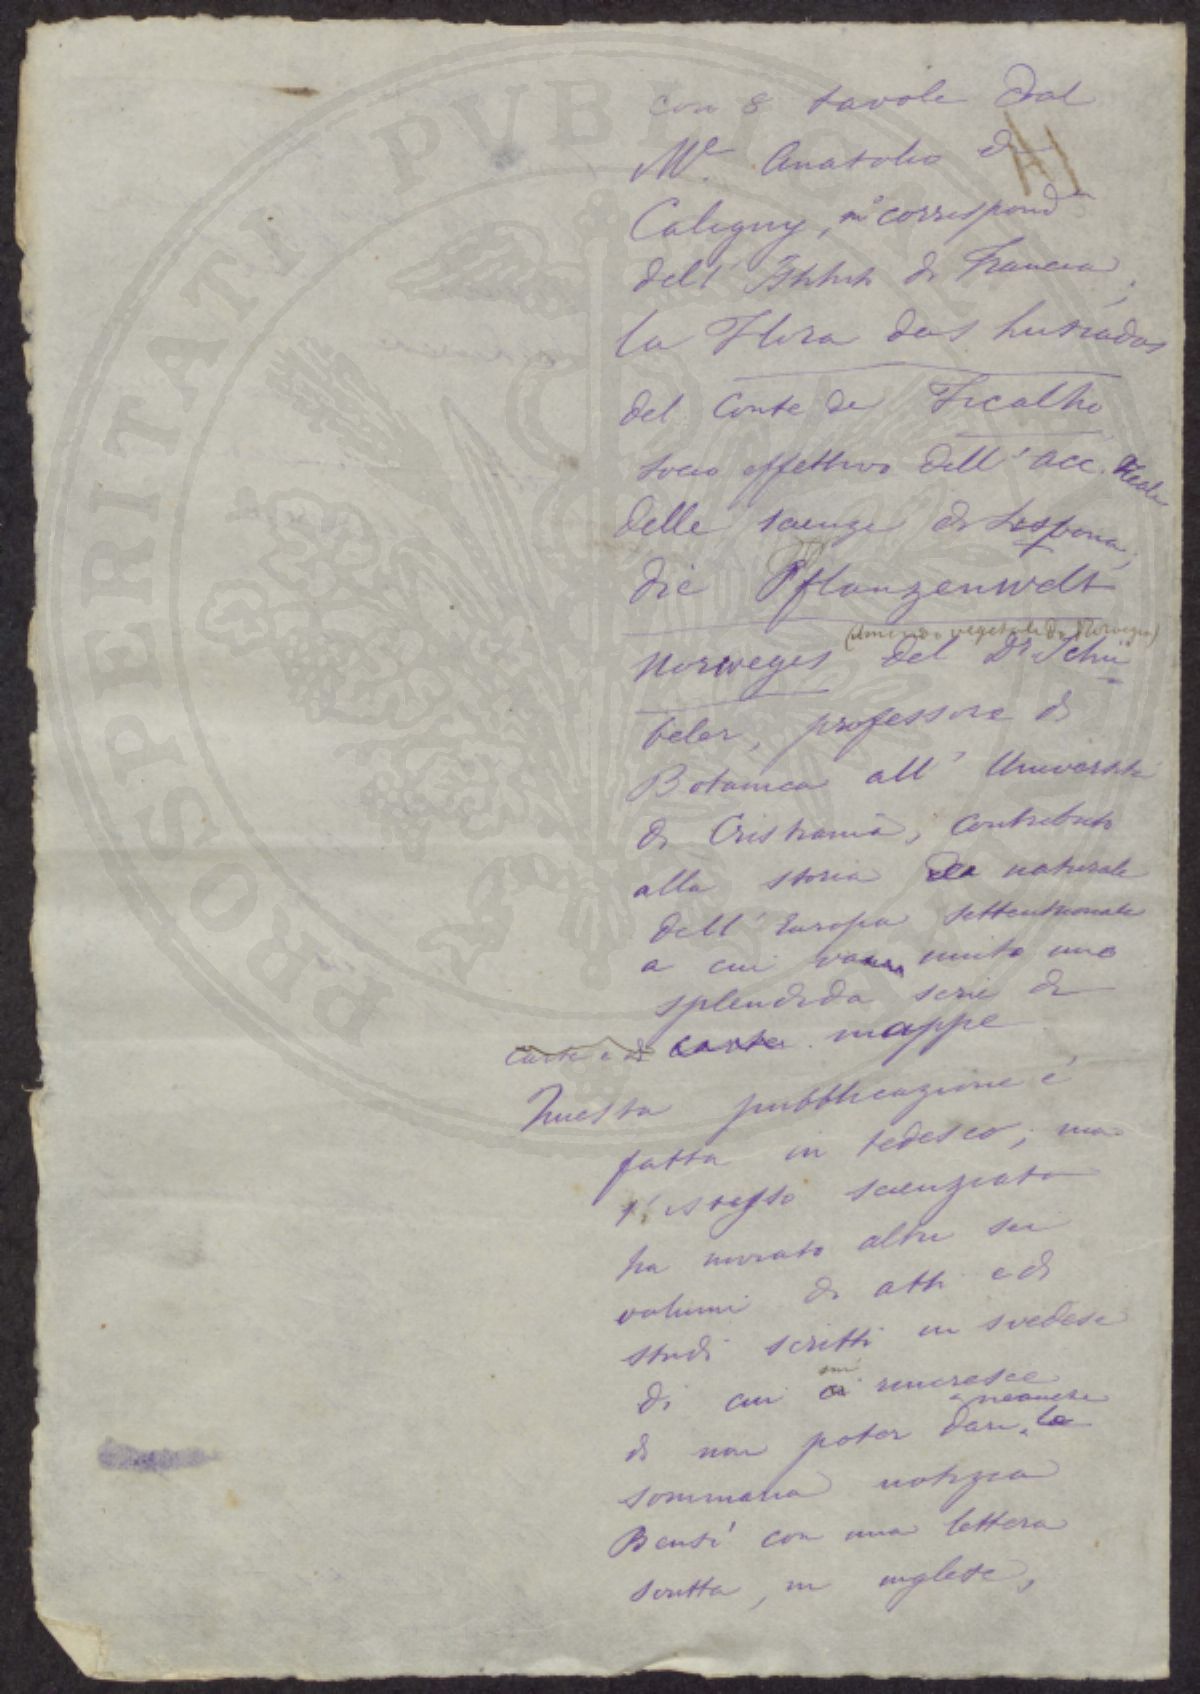 con 8 tavole dal
M.e Anatolio di
Caligny, m° corrispond.
dell' Istitut. di Francia,
la Flora dos Lusiadas
del Conte de Ficalho
socio effettivo dell' acc. Reale
delle scienze di Lisbona,
die Pflanzenwelt
(il mondo vegetale di Norvegia)
Norweges del Dr Schü
beler, professore di
Botanica all' Università
di Cristiania, contributo
alla storia naturale
dell' Europa settentrionale
a cui va unita una
splendida serie di
carte e di carte mappe
Questa pubblicazione è
fatta in tedesco; ma
l' istesso scienziato
ha inviato altri sei
volumi di atti e di
studi scritti in svedese
di cui mi rincresce
di non poter dare neanche la
sommaria notizia
Bensì con una lettera
scritta, in inglese,
PROSPERITATI PVBLICAE